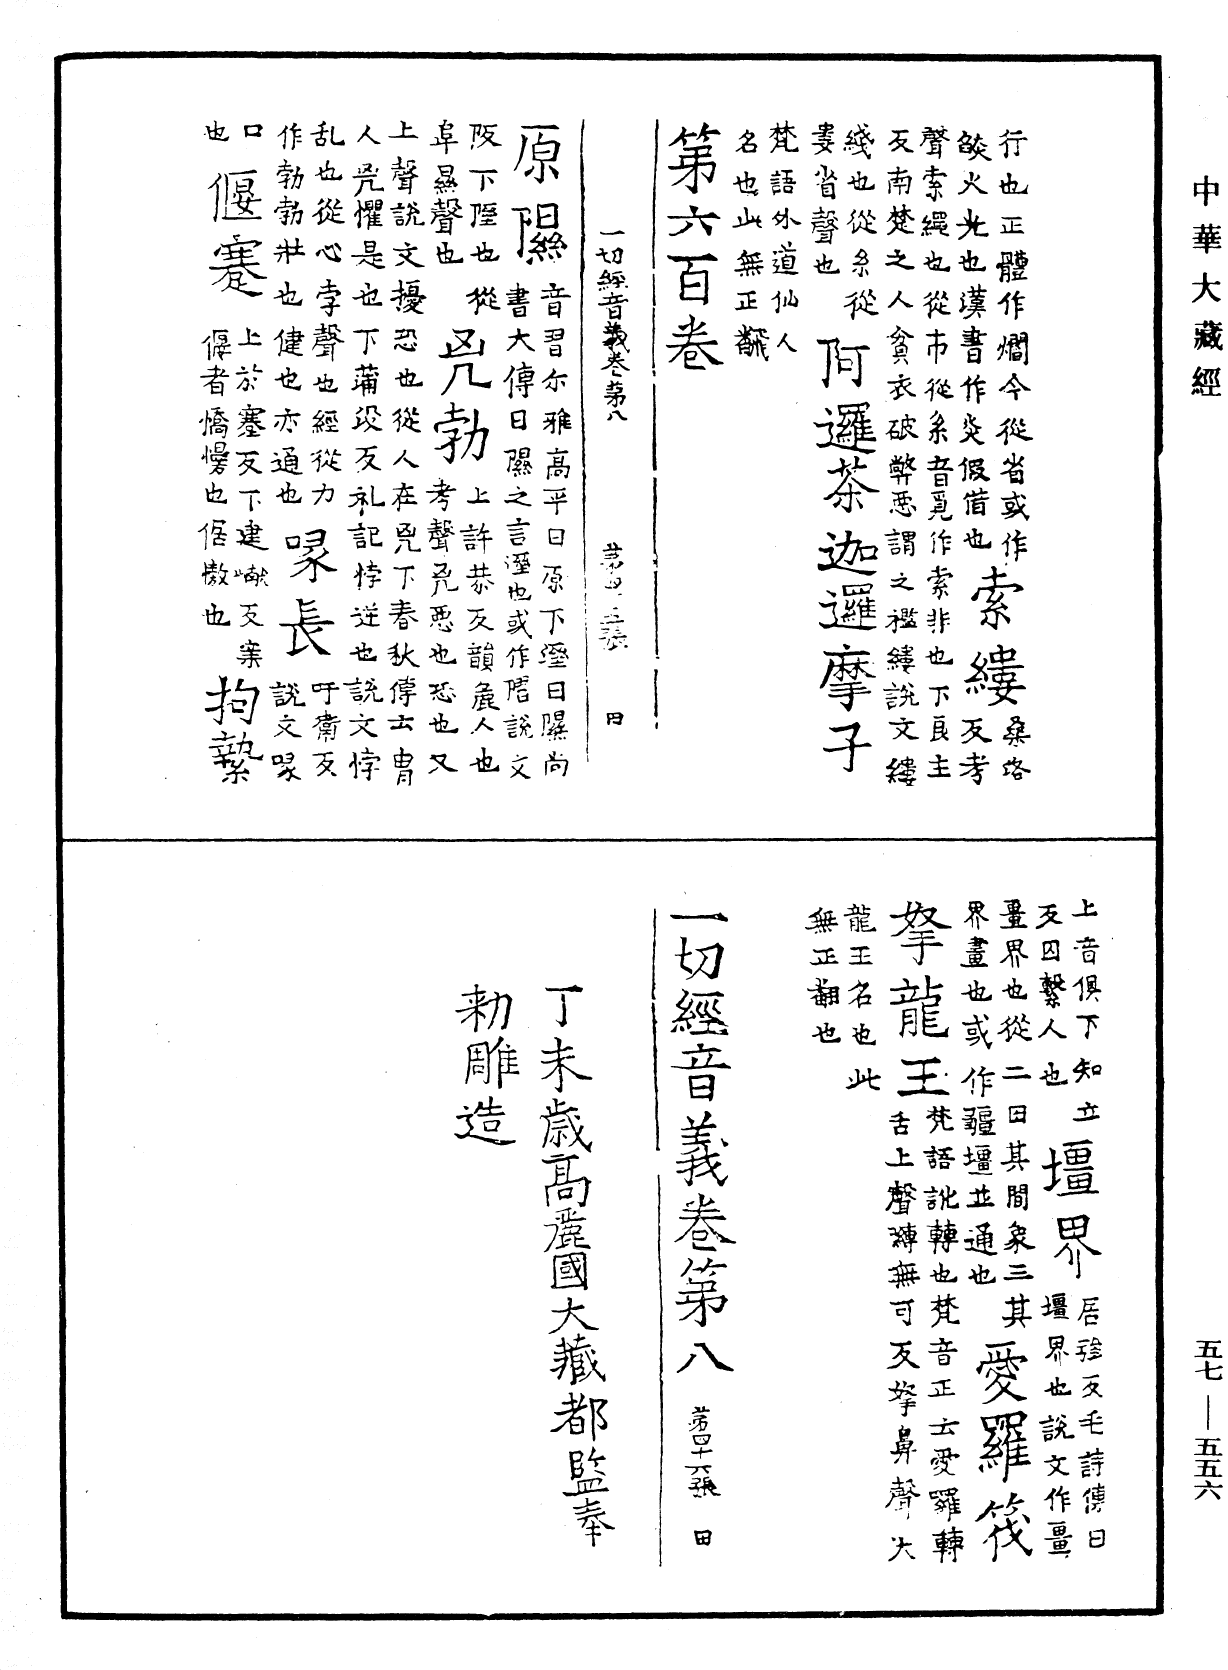 中華大藏經
行也正體作爓今從省或作
燄火光也漢書作炎假借也
索縷
桑洛
反考
聲索繩也從巿從系音覓作索非也下良主
反南楚之人貧衣破弊惡謂之襤縷說文縷
綫也從糸從
婁省聲也
阿邏荼迦邏摩子
梵語外道仙人
名也此無正翻
第六百卷
一切經音義卷第八
第四十五張
田
原隰
音習尓雅髙平曰原下溼曰隰尚
書大傳曰隰之言溼也或作隰說文
阪下隰也從
𨸏㬎聲也
兇勃
上許恭反韻麁人也
考聲兇惡也恐也又
上聲說文擾恐也從人在凶下春秋傳云曹
人兇懼是也下蒲没反礼記悖逆也說文悖
乱也從心孛聲也經從力
作勃勃壯也健也亦通也
喙長
吁衞反
說文喙
口
也
偃蹇
上於塞反下建𡾰反案
偃者憍慢也倨慠也
拘縶
上音俱下知立
反囚繫人也
壃界
居殃反毛詩傳曰
壃界也說文作畺
畺界也從二田其間象三其
界畫也或作疆壃並通也
愛羅筏
拏龍王
梵語訛轉也梵音正云愛囉轉
舌上聲嚩無可反拏鼻聲大
龍王名也此
無正翻也
一切經音義卷第八
第四十六張
田
丁未歲髙麗國大藏都監奉
勑雕造
五七—五五六